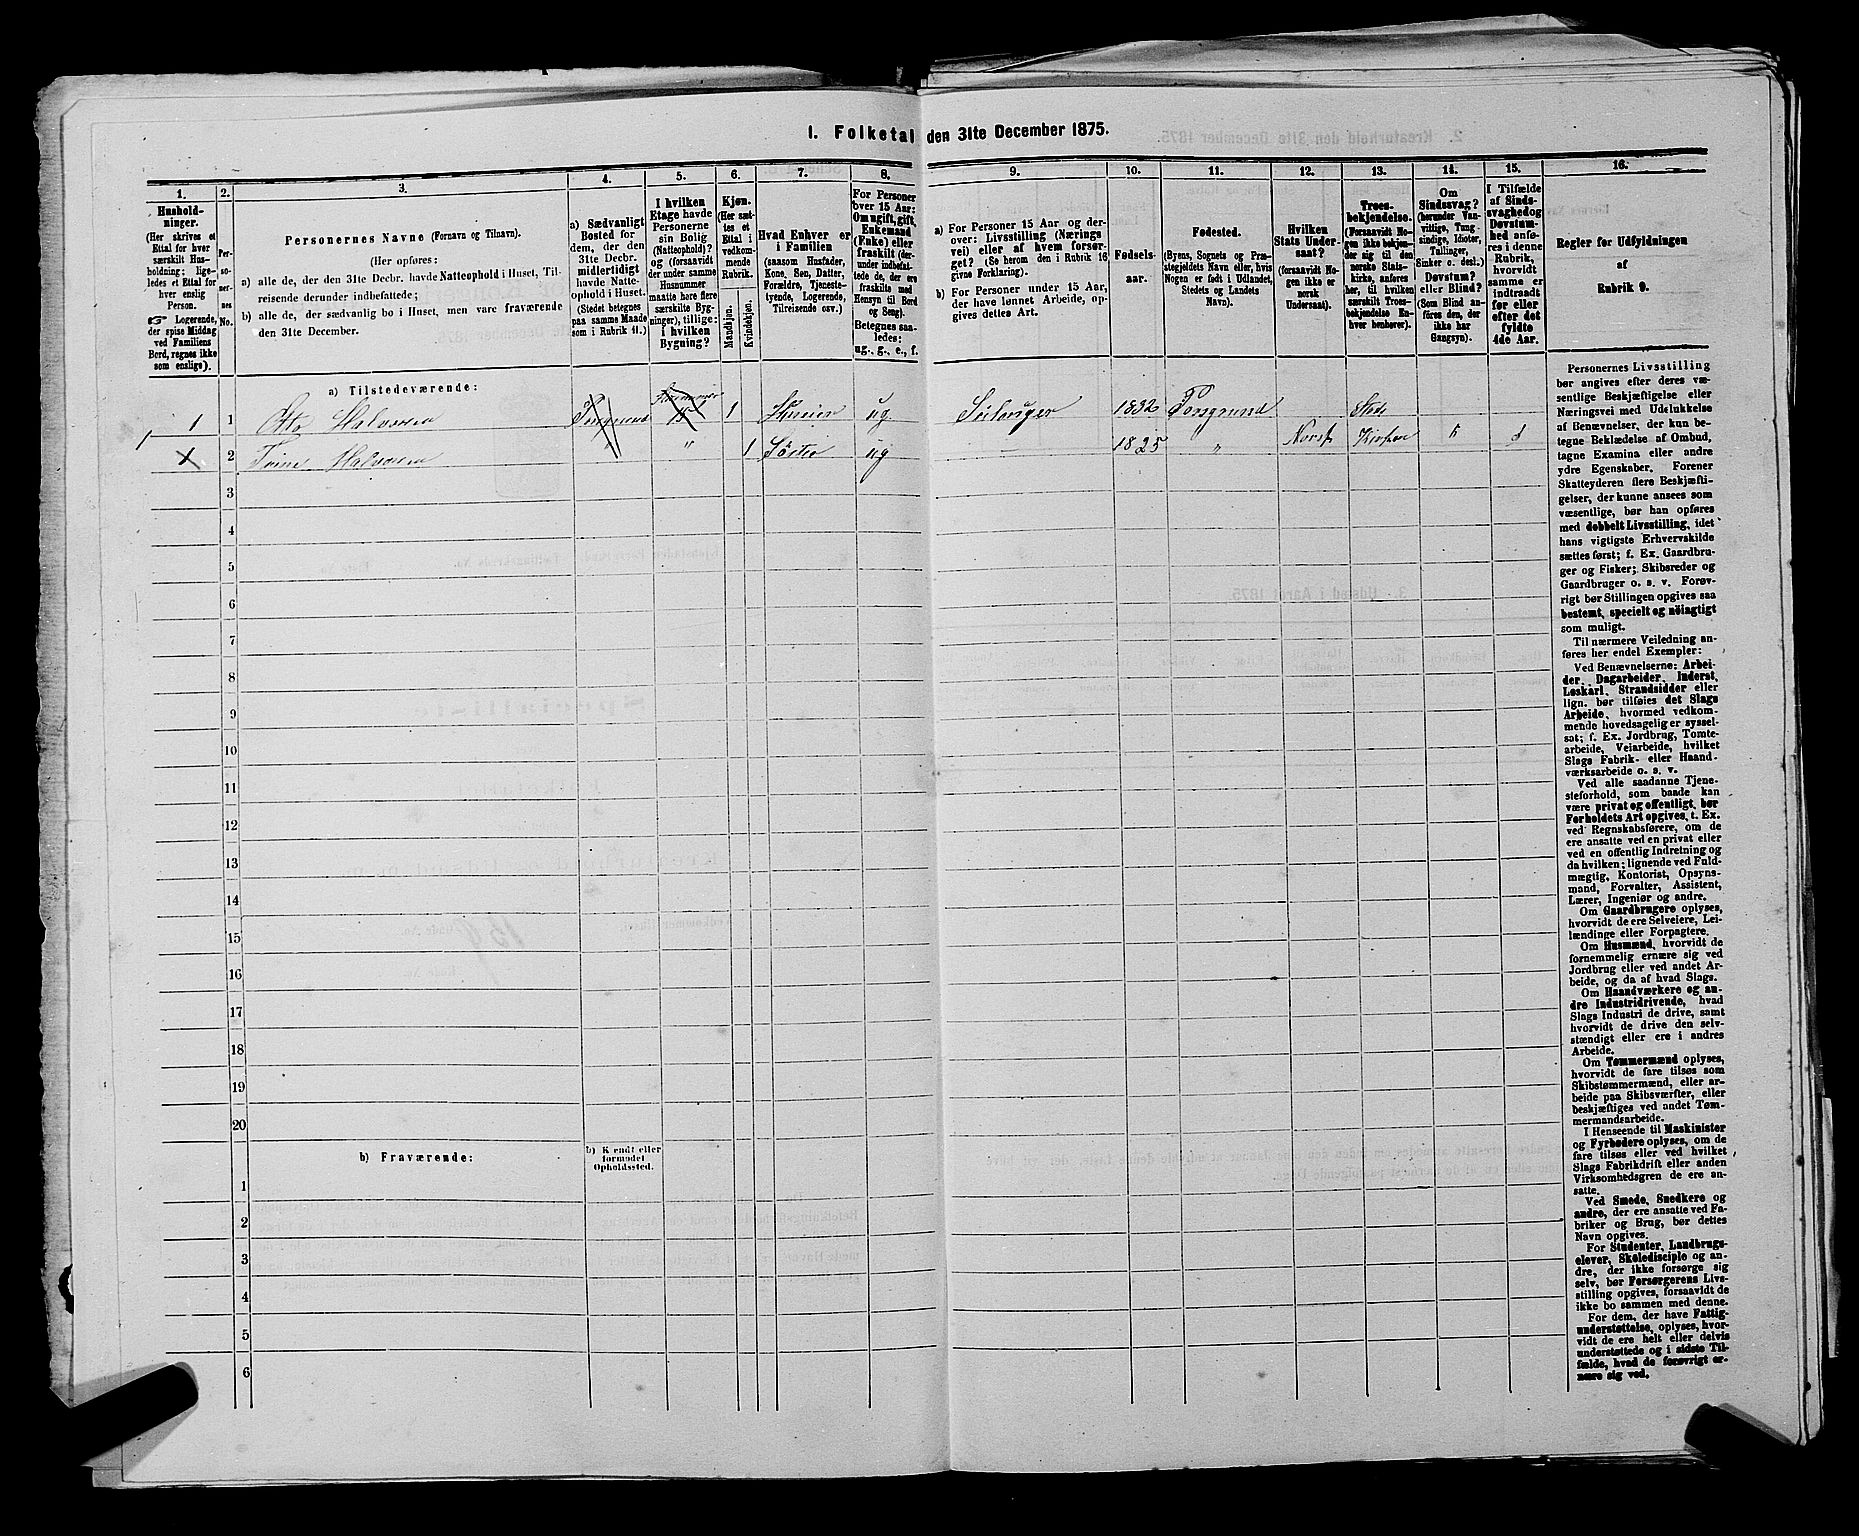 1. Folketal den 31te December 1875.
1. 2. 3. 4. 5. 6. 7. 8. 9. 10. 11. 12. 13. 14. 15. 16.
Hushold-
ninger.
(Her skrives et
Ettal for hver
særskilt Hus-
holdning; lige-
ledes et Ettal for
hver enslig
Person.
☞ Logerende,
der spise Middag
ved Familiens
Bord, regnes ikke
som enslige).
Per-
so-
ner-
nes
No.
Personernes Navne (Fornavn og Tilnavn).
(Her opføres:
a) alle de, der den 31te Decbr. havde Natteophold i Huset, Til-
reisende derunder indbefattede;
b) alle de, der sædvanlig bo i Huset, men vare fraværende
den 31te December.
a) Sædvanligt
Bosted for
dem, der den
31te Decbr.
midlertidigt
havde Natte-
ophold i Huset.
(Stedet betegnes
paa samme Maade
som i Rubrik 11.)
I hvilken
Etage havde
Personerne
sin Bolig
(Natteophold)?
og (forsaavidt
der under samme
Husnummer
maatte høre flere
særskilte Byg-
ninger), tillige:
i hvilken
Bygning?
Kjøn.
(Her sæt-
tes et
Ettal i
vedkom-
mende
Rubrik.
Mandkjøn.
Kvindekjøn.
Hvad Enhver er
i Familien
(saasom Husfader,
Kone, Søn, Datter,
Forældre, Tjeneste-
tyende, Logerende,
Tilreisende osv.)
For Personer
over 15 Aar:
Om ugift, gift,
Enkemand
(Enke) eller
fraskilt (der-
under indbefat-
tede de, der ere
fraskilte med
Hensyn til Bord
og Seng).
Betegnes saa-
ledes:
ug., g., e., f.
a) For Personer 15 Aar og der-
over: Livsstilling (Nærings-
vei) eller af hvem forsør-
get? (Se herom den i Rubrik 16
givne Forklaring).
b) For Personer under 15 Aar,
der have lønnet Arbeide, op-
gives dettes Art.
Fødsels-
aar.
Fødested.
(Byens, Sognets og Præ-
stegjeldets Navn eller, hvis
Nogen er født i Udlandet,
Stedets og Landets
Navn).
Hvilken
Stats Under-
saat?
(forsaavidt No-
gen ikke er
norsk
Undersaat).
Troes-
bekjendelse.
(Forsaavidt No-
gen ikke bekjen-
der sig til den
norske Stats-
kirke, anføres
her, til hvilken
særskilt Troes-
bekjendelse En-
hver henhører).
Om
Sindssvag?
(herunder Van-
vittige, Tung-
sindige, Idioter,
Tullinger,
Sinker o. desl.)
Døvstum?
eller Blind?
(Som Blind an-
føres den, der
ikke har
Gangsyn).
I Tilfælde
af Sinds-
svaghed og
Døvstum-
hed anfø-
res i denne
Rubrik,
hvorvidt
samme er
indtraadt
før eller
efter det
fyldte
4de Aar.
Regler for Udfyldningen
af
Rubrik 9.
a) Tilstedeværende:
1 1 Otto Halvorsen 1 ug 1832 Porsgrund
2 Halvorsen " " 1 Søster ug 1825 " Norsk
3
4
5
6
7
8
9
10
11
12
13
14
15
16
17
18
19
20
b) Fraværende:
b) Kjendt eller
formodet
Opholdssted.
1
2
3
4
5
6
Personernes Livsstilling
bør angives efter deres væ-
sentlige Beskjæftigelse eller
Næringsvei med Udelukkelse
af Benævnelser, der kun be-
tegne Beklædelse af Ombud,
tagne Examina eller andre
ydre Egenskaber. Forener
Skatteyderen flere Beskjæfti-
gelser, der kunne ansees som
væsentlige, bør han opføres
med dobbelt Livsstilling, idet
hans vigtigste Erhvervskilde
sættes først; f. Ex. Gaardbru-
ger og Fisker; Skibsreder og
Gaardbruger o. s. v. Forøv-
rigt bør Stillingen opgives saa
bestemt, specielt og nøiagtigt
som muligt.
Til nærmere Veiledning an-
føres her endel Exempler:
Ved Benævnelserne: Arbei-
der, Dagarbeider, Inderst,
Løskarl, Strandsidder eller
lign. bør tilføies det Slags
Arbeide, hvormed vedkom-
mende hovedsagelig er syssel-
sat; f. Ex. Jordbrug, Tomte-
arbeide, Veiarbeide, hvilket
Slags Fabrik- eller Haand-
værksarbeide o. s. v.
Ved alle saadanne Tjene-
steforhold, som baade kan
være privat og offentligt, bør
Forholdets Art opgives, t. Ex.
ved Regnskabsførere, om de
ere ansatte ved en privat eller
ved en offentlig Indretning og
da hvilken; lignende ved Fuld-
mægtig, Kontorist, Opsyns-
mand, Forvalter, Assistent,
Lærer, Ingeniør og andre.
Om Gaardbrugere oplyses,
hvorvidt de ere Selveiere, Lei-
lændinge eller Forpagtere.
Om Husmænd, hvorvidt de
fornemmelig ernære sig ved
Jordbrug eller ved andet Ar-
beide, og da af hvad Slags.
Om Haandværkere og an-
dre Industridrivende, hvad
Slags Industri de drive, samt
hvorvidt de drive den selv-
stændigt eller ere i andres
Arbeide.
Om Tømmermænd oplyses,
hvorvidt de fare tilsøs som
Skibstømmermænd, eller ar-
beide paa Skibsværfter, eller
beskjæftiges ved andet Tøm-
mermandsarbeide.
I Henseende til Maskinister
og Fyrbødere oplyses, om de
fare tilsøs eller ved hvilket
Slags Fabrikdrift eller anden
Virksomhedsgren de ere an-
satte.
Ved Smede, Snedkere og
andre, der ere ansatte ved Fa-
briker og Brug, bør dettes
Navn opgives.
For Studenter, Landbrugs-
elever, Skoledisciple og an-
dre, der ikke forsørge sig
selv, bør Forsørgerens Livs-
stilling opgives, forsaavidt de
ikke bo sammen med denne.
For dem, der have Fattig-
understøttelse, oplyses, hvor-
vidt de ere helt eller delvis
understøttede og i sidste Til-
fælde, hvad de forøvrigt er-
nære sig ved.